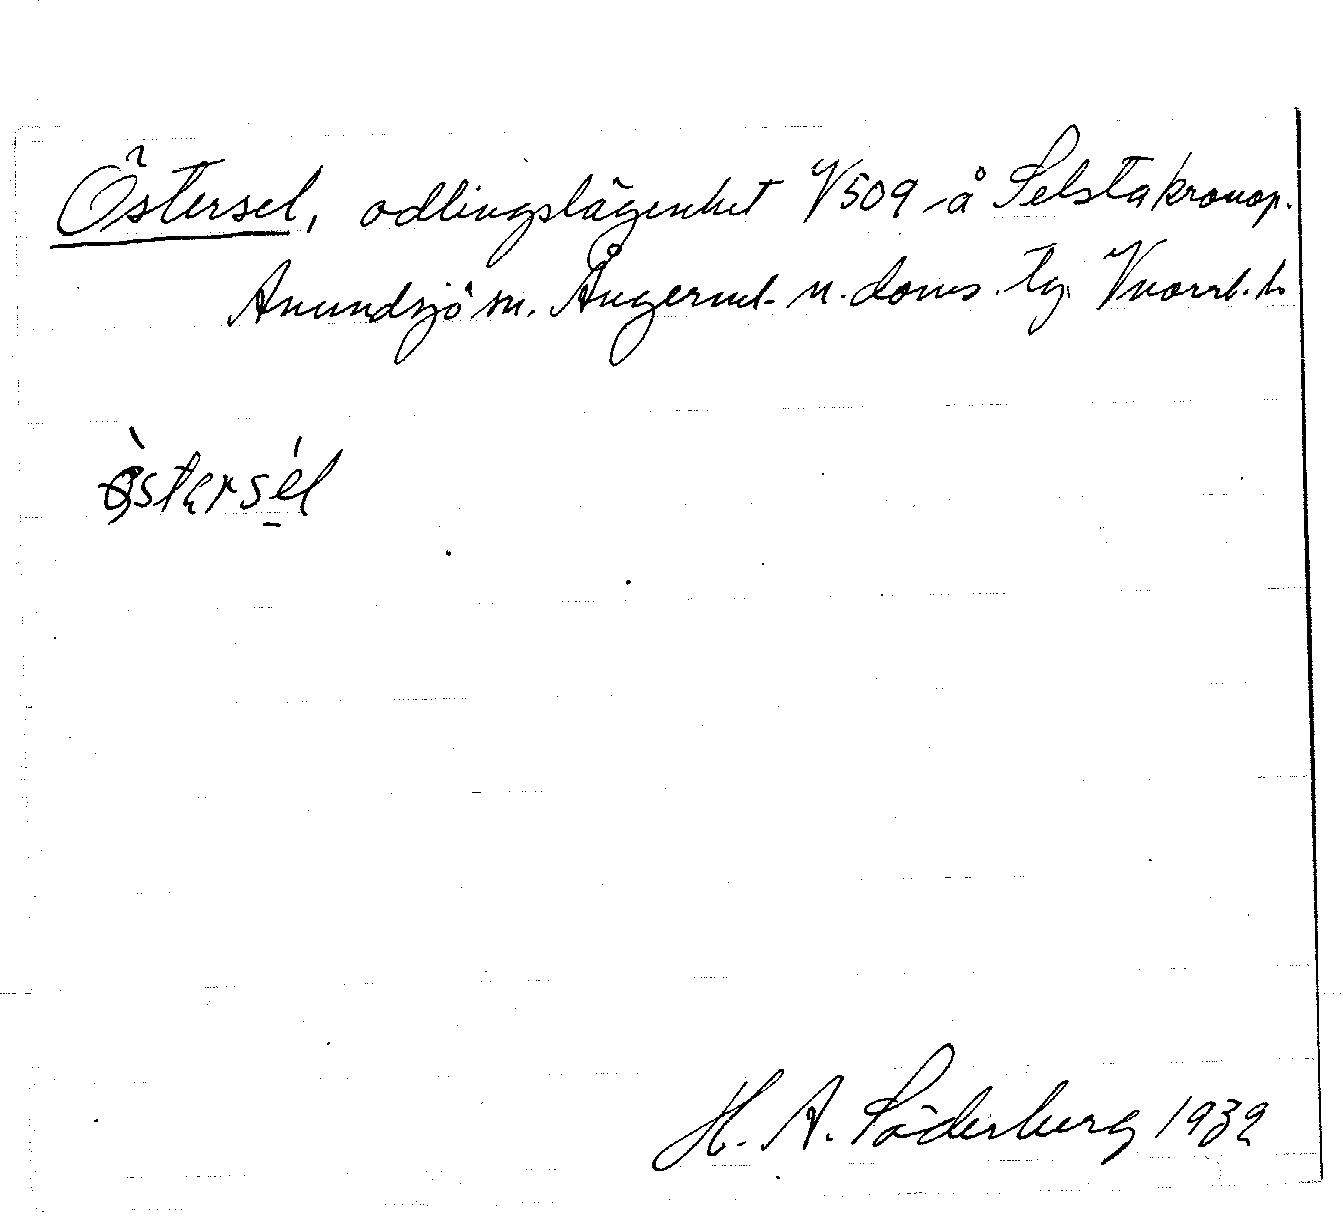 Östersel, odlingslägenhet V509 å Selsta kronop.
Anundsjö sn. Ångerml. n. doms. tg. Vnorrl. l.
östersél
H. A. Söderberg 1932